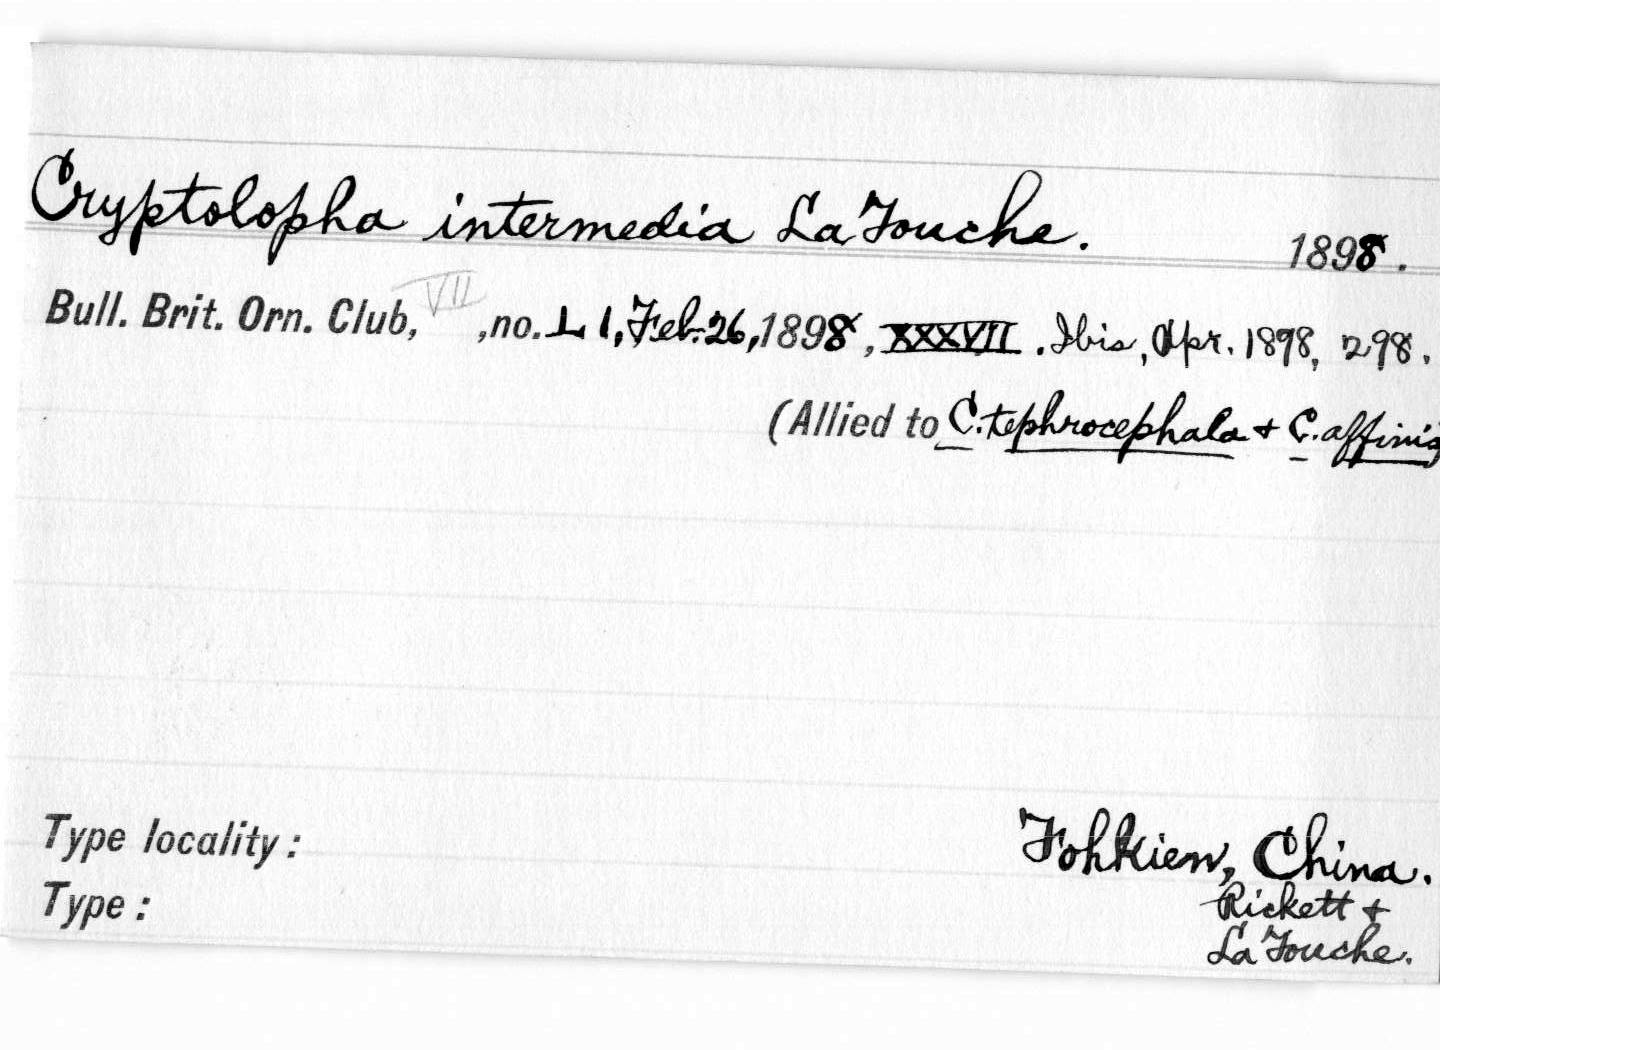 Cryptolopha intermedia La Touche. 1898.
Bull. Brit. Orn. Club, VII ,no. L I, Feb. 26, 1898, XXXVII . Ibis, Apr. 1898, 298.
(Allied to C. tephrocephala + C. affinis)
Type locality: Fohkien, China.
Type: Rickett +
La Touche.